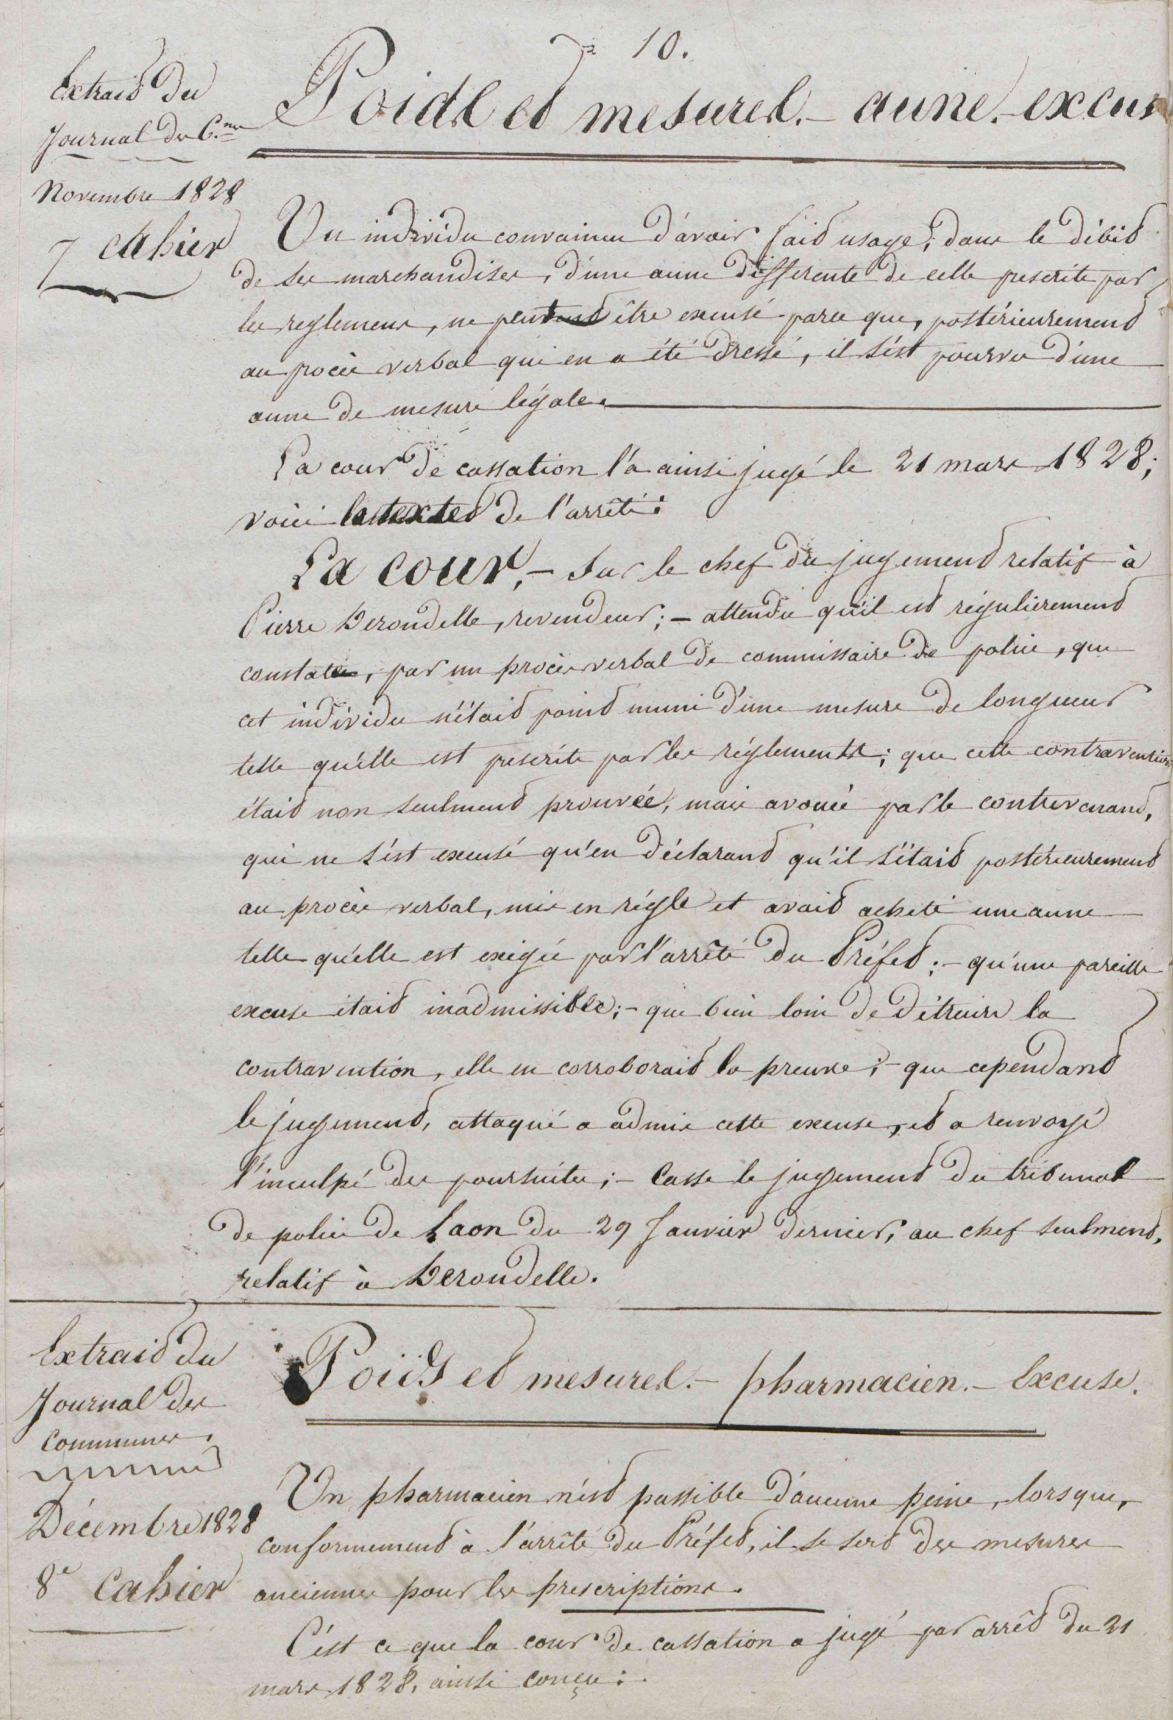 10.
Extrait du
Journal des C.nes
Novembre 1828
7 Cahier
Poids et mesures. – aune. – excus
Un individu convaincu d'avoir fait usage, dans le débit
de ses marchandises, d'une aune differente de celle prescrite par
les reglemens, ne peut être excusé parce que, postérieurement
au procès verbal qui en a été dressé, il s'est pourvu d'une
aune de mesure légale.
La cour de cassation l'a ainsi jugé le 21 mars 1828;
voici le texte de l'arrêté:
La cour, – Sur le chef du jugement relatif à
Pierre Derondelle, revendeur; – attendu qu'il est régulierement
constaté, par un procès verbal de commissaire de police, que
cet individu n'était point muni d'une mesure de longueur
telle qu'elle est prescrite par les réglements; que cette contravention
était non seulment prouvée, mais avouée par le contrevenant,
qui ne s'est excusé qu'en déclarant qu'il s'était postérieurement
au procès verbal, mis en régle et avait acheté une aune
telle qu'elle est exigée par l'arrêté du Préfet; – qu'une pareille
excuse était inadmissible; – que bien loin de détruire la
contravention, elle en corroborait la preuve; – que cependant
le jugement, attaqué a admis cette excuse, et a renvoyé
l'inculpé des poursuites; – Casse le jugement du tribunal
de police de Laon du 29 Janvier dernier, au chef seulment,
relatif à Derondelle.
Extrait du
Journal des
Communes.
Décembre 1828
8e Cahier
Poids et mesures. – pharmacien. – Excuse.
Un pharmacien n'est passible d'aucune peine, lorsque,
conformement à l'arrêté du Préfet, il se sert des mesures
anciennes pour les prescriptions.
C'est ce que la cour de cassation a jugé par arrêt du 21
mars 1828, ainsi conçu: